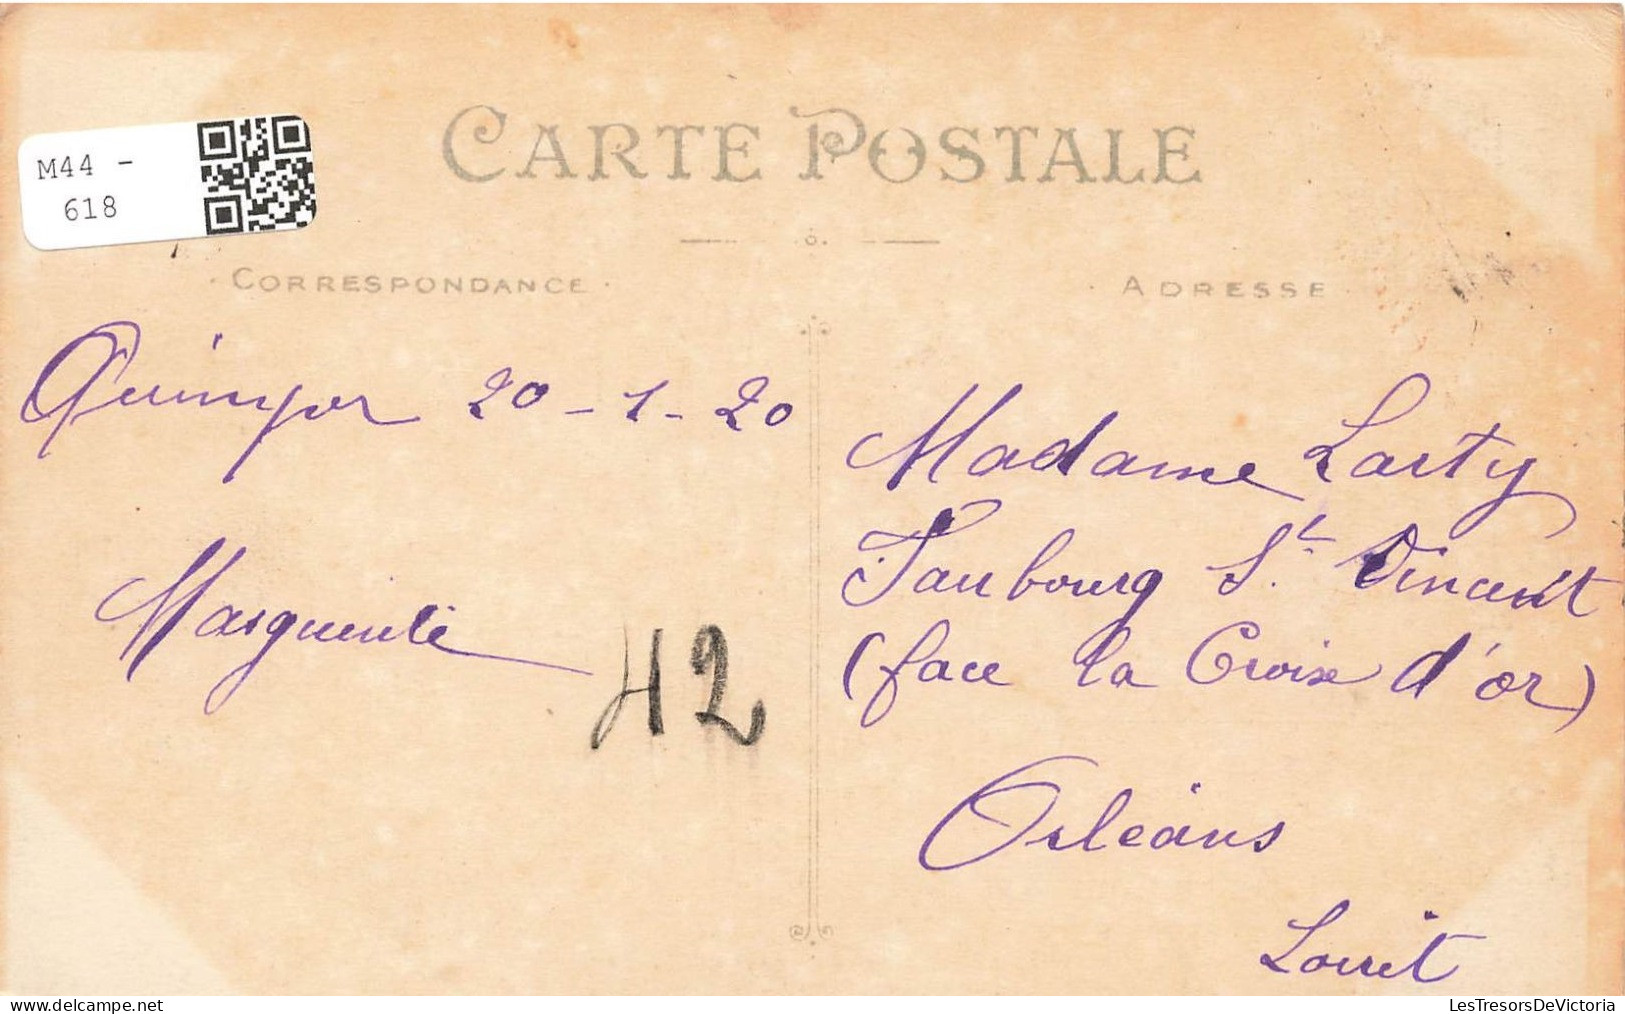 M44 -
618
CARTE POSTALE
CORRESPONDANCE
ADRESSE
Quimper 20-1-20
Marguerite
42
Madame Larty
Faubourg St. Vincent
(face la Croix d'or)
Orléans
Loiret
delcampe.net
LesTresorsDeVictoria